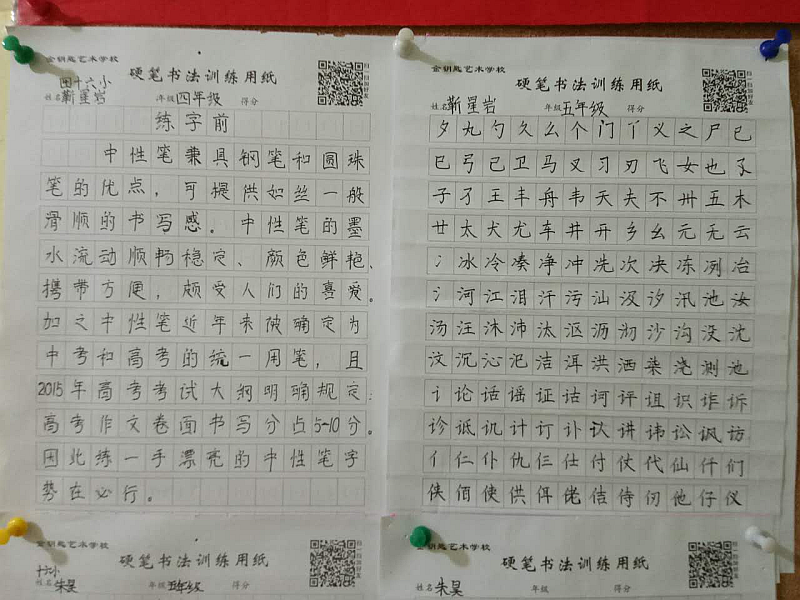 金钥匙艺术学校
硬笔书法训练用纸
扫一扫加好友
田十六小
姓名 靳星岩 年级 四年级 得分
练字前
中性笔兼具钢笔和圆珠
笔的优点，可提供如丝一般
滑顺的书写感。中性笔的墨
水流动顺畅稳定、颜色鲜艳、
携带方便，颇受人们的喜爱。
加之中性笔近年来被确定为
中考和高考的统一用笔，且
2015年高考考试大纲明确规定：
高考作文卷面书写分占5-10分。
因此练一手漂亮的中性笔字
势在必行。
金钥匙艺术学校
硬笔书法训练用纸
扫一扫加好友
姓名 靳星岩 年级 五年级 得分
夕丸勺久么个门丫义之尸已
巳弓己卫马叉习刃飞女也孓
子孑王丰舟韦夭夫不卅五木
廿太犬尤车井开乡幺元无云
冫冰冷凑净冲冼次决冻冽冶
氵河江泪汗污汕汲汐汛池汝
汤汪沐沛汰沤沥沏沙沟没沈
汶沉沁汜洁洱洪洒染浇测池
讠论话谣证诂诃评诅识诈诉
诊诋讥计订讣议讲讳讼讽访
亻仁仆仇仨仕付仗代仙仟们
侠佰使供佴佬佶侍仞他仔仪
金钥匙艺术学校
硬笔书法训练用纸
十六小
姓名 朱昊 年级 五年级 得分
金钥匙艺术学校
硬笔书法训练用纸
姓名 朱昊 年级 得分